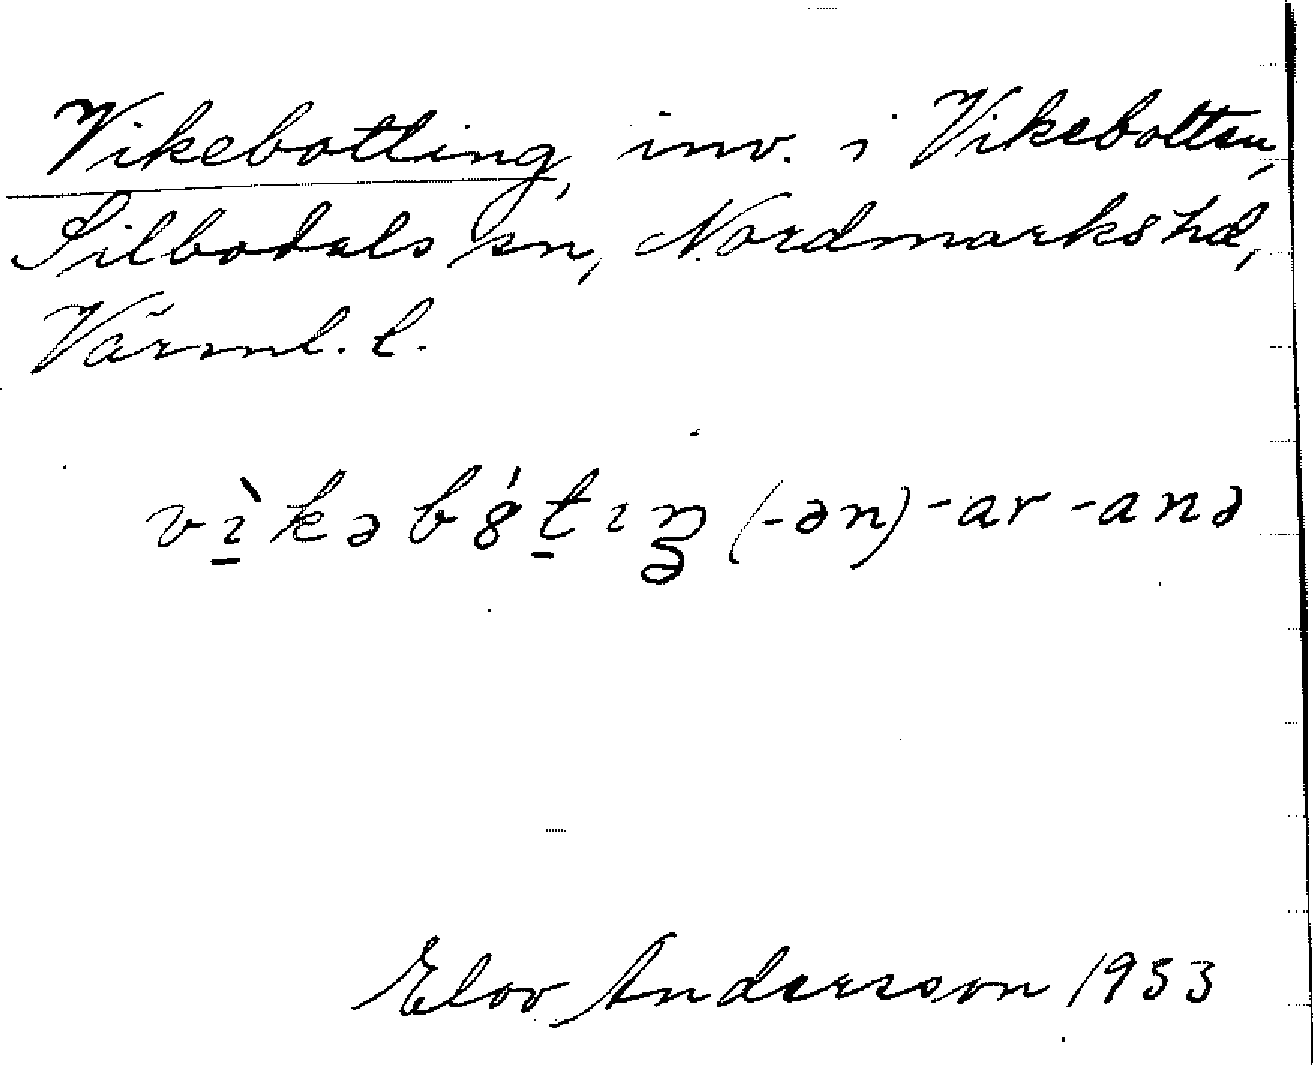 Vikebotting, inv. i Vikebotten,
Silbodals sn, Nordmarks hd,
Värml. l.
vì̠kəb8́t̠ıŋ (-ən) -ar -anə
Elov Andersson 1953